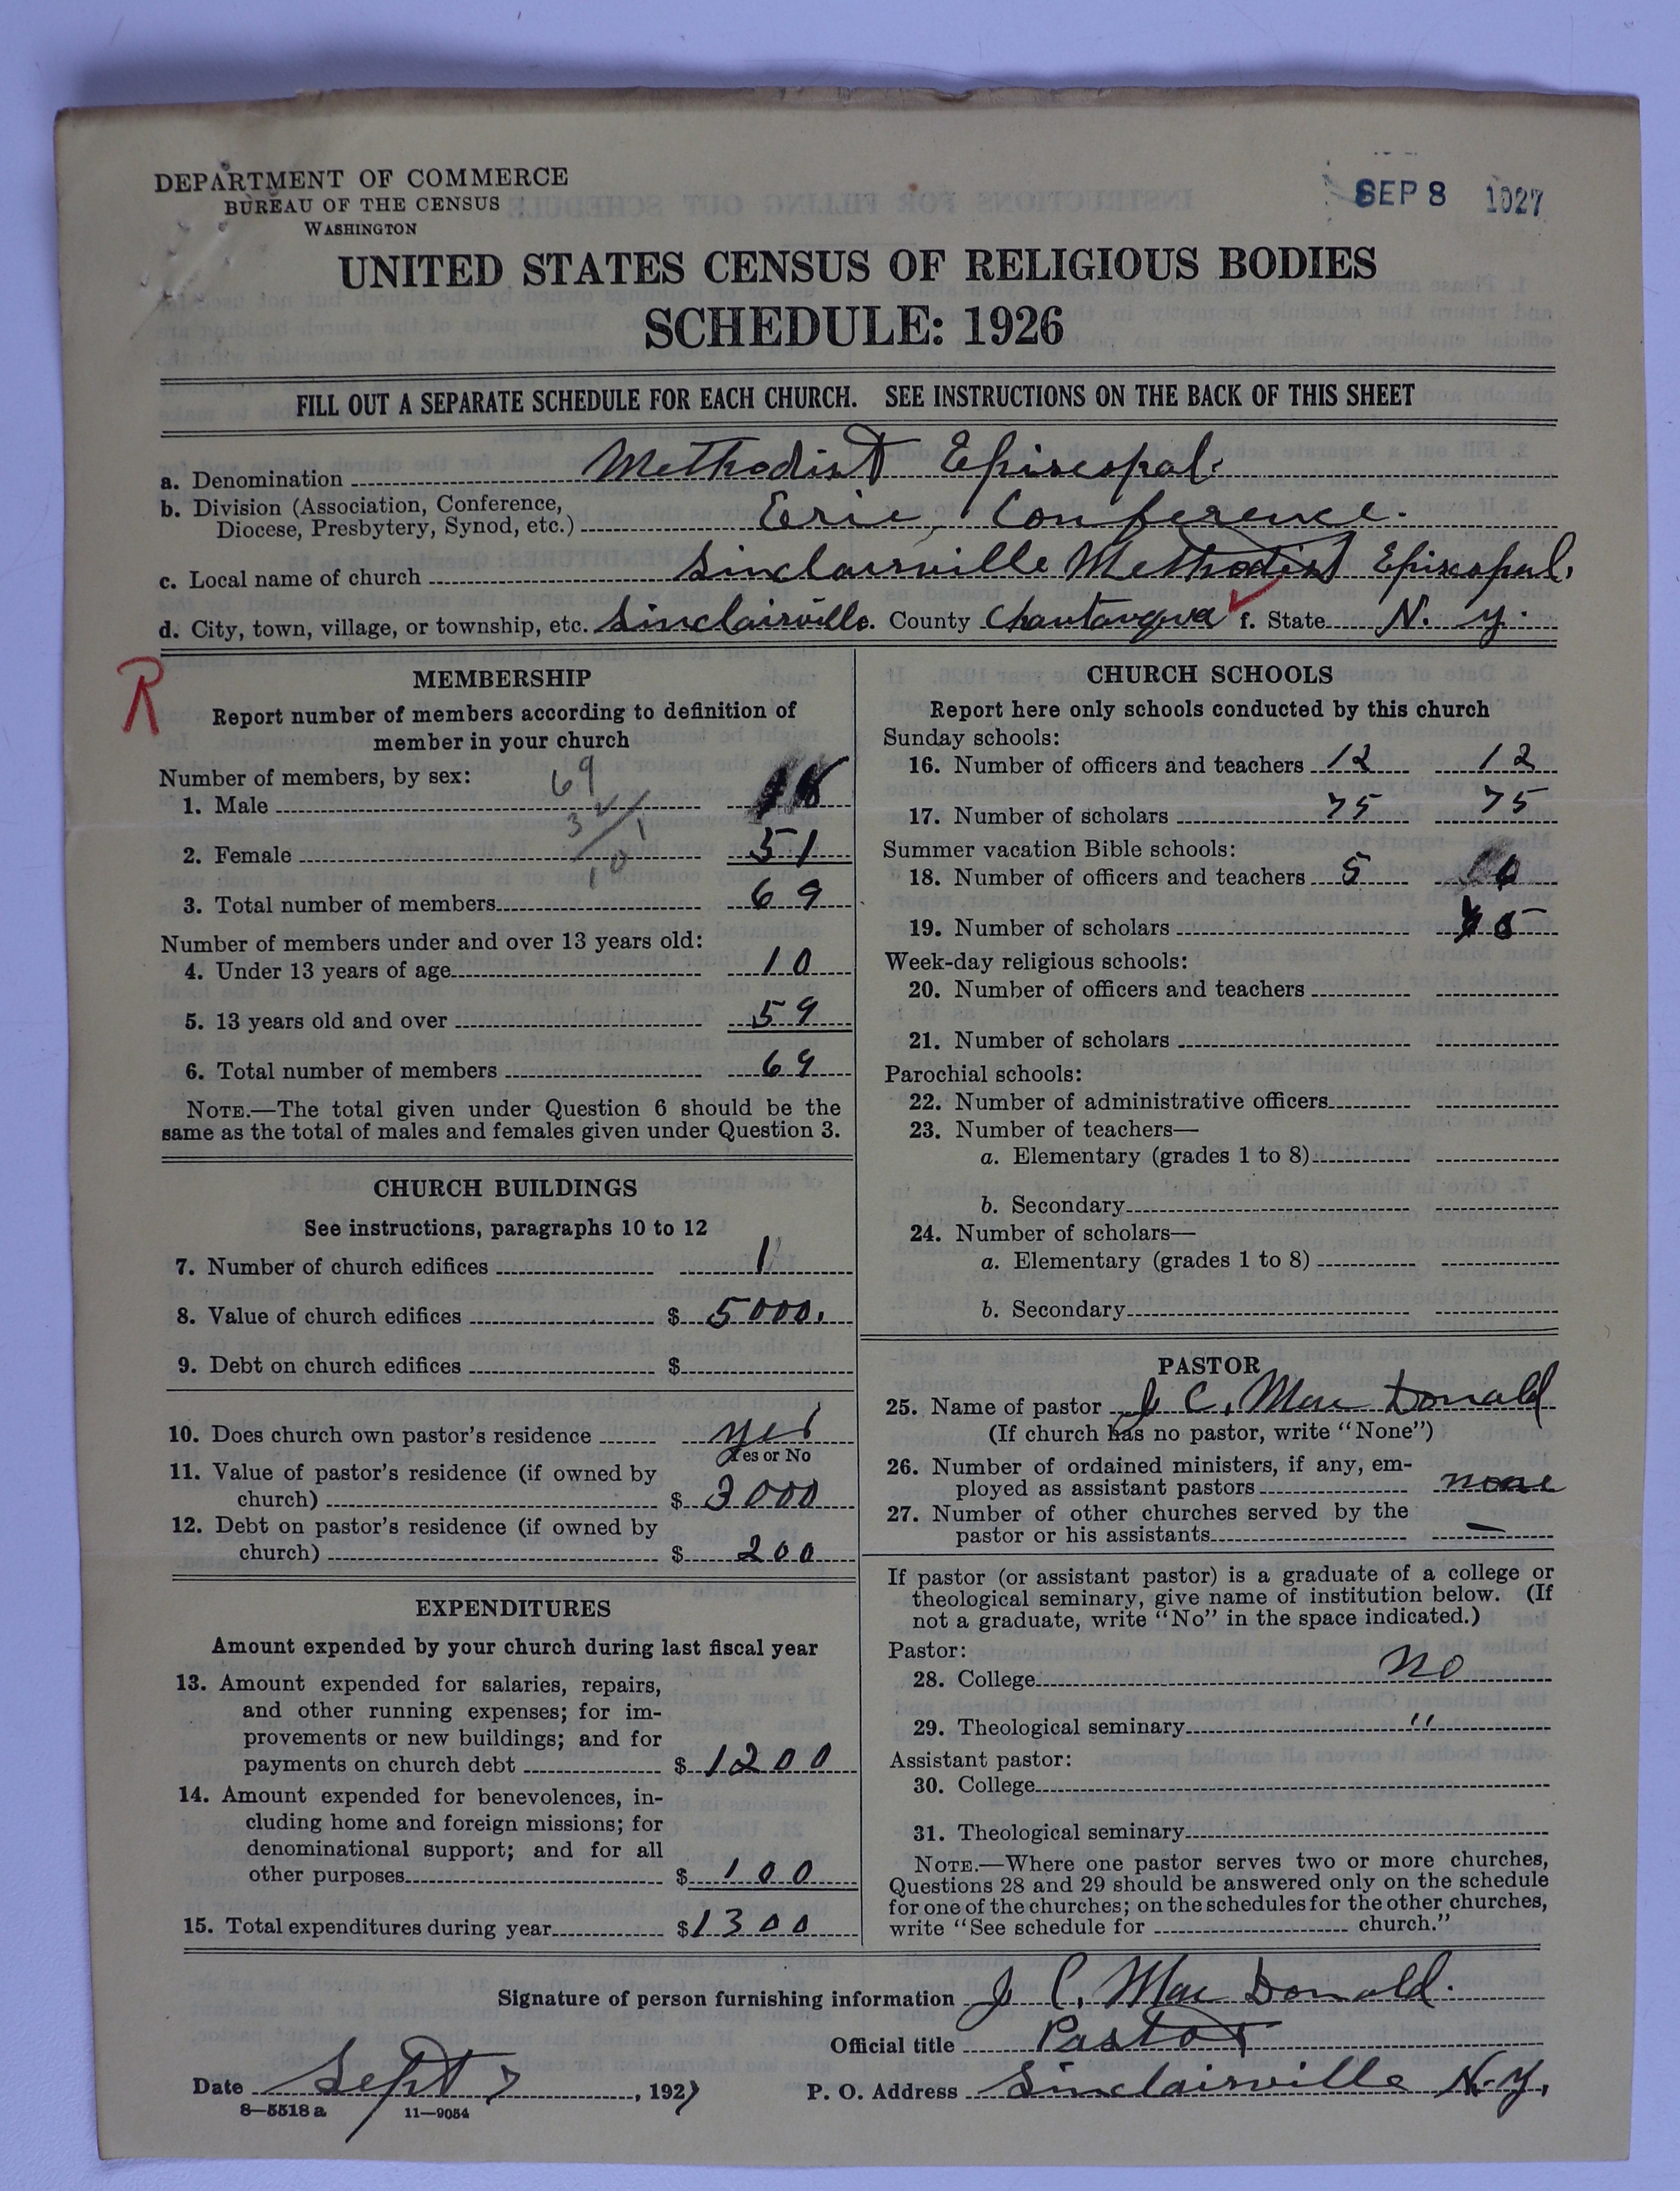 DEPARTMENT OF COMMERCE
BUREAU OF THE CENSUS
WASHINGTON
SEP 8 1927
UNITED STATES CENSUS OF RELIGIOUS BODIES
SCHEDULE: 1926
FILL OUT A SEPARATE SCHEDULE FOR EACH CHURCH. SEE INSTRUCTIONS ON THE BACK OF THIS SHEET
a. Denomination Methodist Episcopal.
b. Division (Association, Conference,
Diocese, Presbytery, Synod, etc.) Erie, Conference.
c. Local name of church Sinclairville Methodist Episcopal.
d. City, town, village, or township, etc. Sinclairville. County Chautauqua f. State N. Y.
R
MEMBERSHIP
Report number of members according to definition of
member in your church
Number of members, by sex:
69
1. Male 18
2. Female 51
10
3. Total number of members 69
Number of members under and over 13 years old:
4. Under 13 years of age 10
5. 13 years old and over 59
6. Total number of members 69
NOTE.—The total given under Question 6 should be the
same as the total of males and females given under Question 3.
CHURCH BUILDINGS
See instructions, paragraphs 10 to 12
7. Number of church edifices 1
8. Value of church edifices $ 5000.
9. Debt on church edifices $
10. Does church own pastor's residence yes
Yes or No
11. Value of pastor's residence (if owned by
church) $ 3000
12. Debt on pastor's residence (if owned by
church) $ 200
EXPENDITURES
Amount expended by your church during last fiscal year
13. Amount expended for salaries, repairs,
and other running expenses; for im-
provements or new buildings; and for
payments on church debt $ 1200
14. Amount expended for benevolences, in-
cluding home and foreign missions; for
denominational support; and for all
other purposes $ 100
15. Total expenditures during year $ 1300
CHURCH SCHOOLS
Report here only schools conducted by this church
Sunday schools:
16. Number of officers and teachers 12 12
17. Number of scholars 75 75
Summer vacation Bible schools:
18. Number of officers and teachers 5
19. Number of scholars
Week-day religious schools:
20. Number of officers and teachers
21. Number of scholars
Parochial schools:
22. Number of administrative officers
23. Number of teachers—
a. Elementary (grades 1 to 8)
b. Secondary
24. Number of scholars—
a. Elementary (grades 1 to 8)
b. Secondary
PASTOR
25. Name of pastor J C. Mac Donald
(If church has no pastor, write "None")
26. Number of ordained ministers, if any, em-
ployed as assistant pastors none
27. Number of other churches served by the
pastor or his assistants —
If pastor (or assistant pastor) is a graduate of a college or
theological seminary, give name of institution below. (If
not a graduate, write "No" in the space indicated.)
Pastor:
28. College No
29. Theological seminary "
Assistant pastor:
30. College
31. Theological seminary
NOTE.—Where one pastor serves two or more churches,
Questions 28 and 29 should be answered only on the schedule
for one of the churches; on the schedules for the other churches,
write "See schedule for church."
Signature of person furnishing information J C. Mac Donald.
Official title Pastor
Date Sept 7, 1927 P. O. Address Sinclairville N.Y.
8—5518 a 11—9054